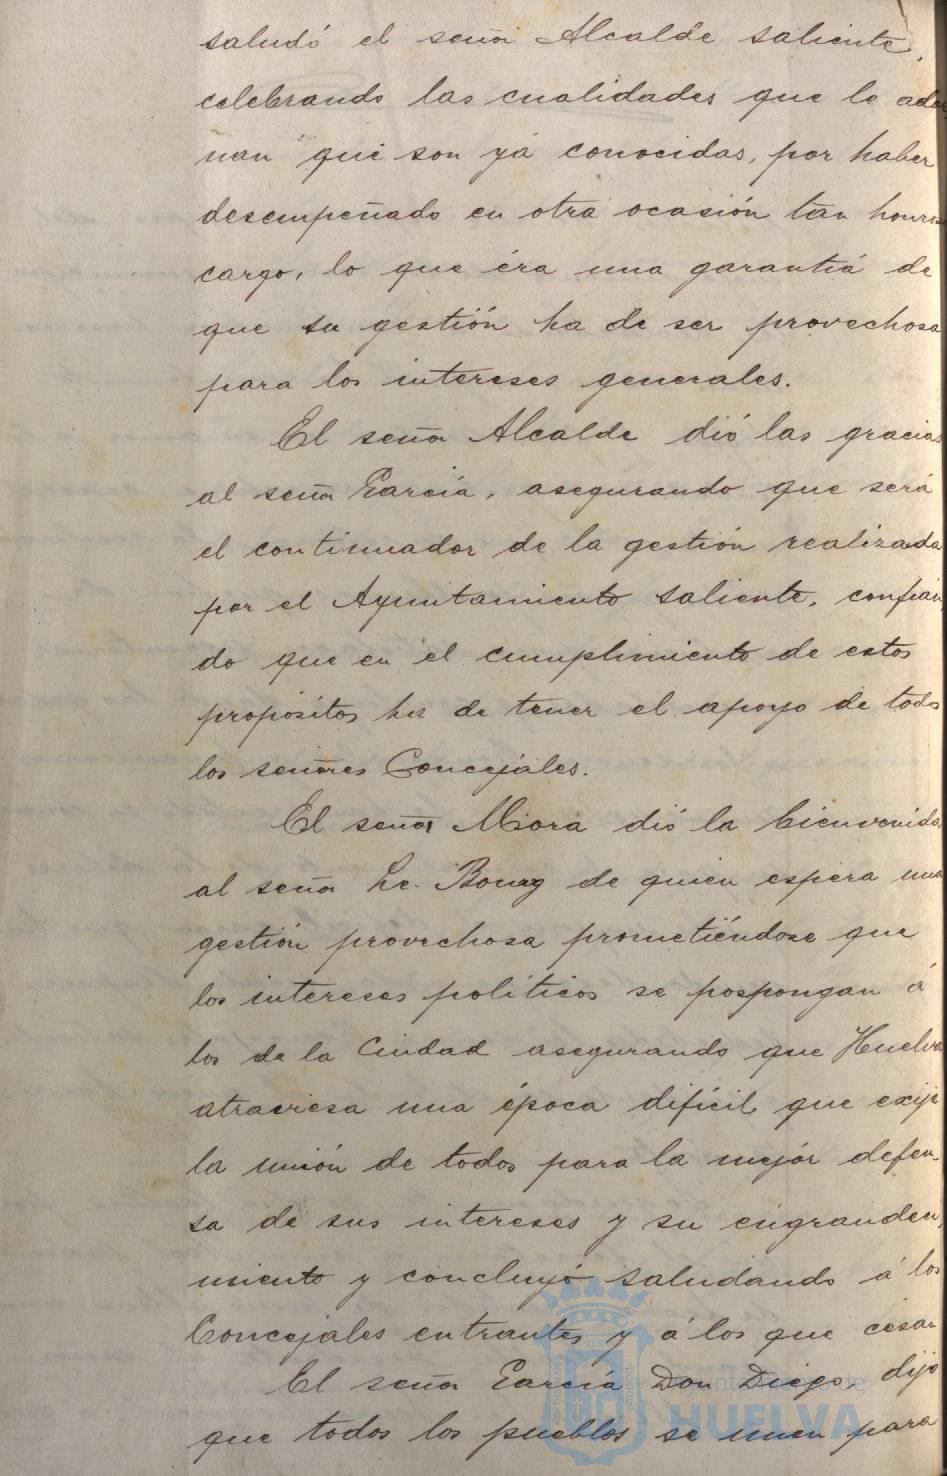 saludó el señor Alcalde saliente,
celebrando las cualidades que le ador
nan que son yá conocidas, por haber
desempeñado en otra ocasión tan honroso
cargo, lo que éra una garantiá de
que su gestión ha de ser provechosa
para los intereses generales.
El señor Alcalde dió las gracias
al señor Garciá, asegurando que será
el continuador de la gestión realizada
por el Ayuntamiento saliente, confian
do que en el cumplimiento de estos
propósitos ha de tener el apoyo de todos
los señores Concejales.
El señor Mora dió la bienvenida
al señor Le-Bourg de quien espera una
gestión provechosa prometiéndose que
los intereses políticos se pospongan á
los de la Ciudad asegurando que Huelva
atraviesa una época difícil que exije
la unión de todos para la mejór defen-
sa de sus intereses y su engrandeci
miento y concluyó saludando á los
Concejales entrantes y á los que cesan
El señor García Don Diego, dijo
que todos los pueblos se unen para
Ayuntamiento de
HUELVA